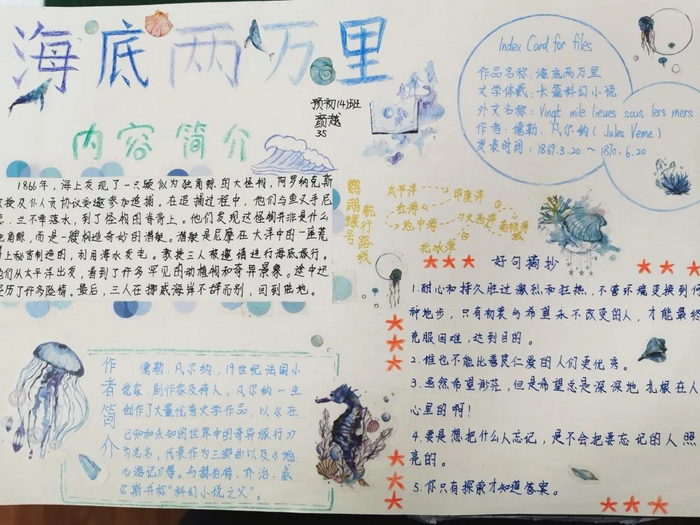 海底两万里
预初(4)班
颜越
35
内容简介
1866年，海上发现了一只疑似为独角鲸的大怪物，阿罗纳克斯
教授及仆人康协议受邀参加追捕。在追捕过程中，他们与鱼叉手尼
兰不幸落水，到了怪物的脊背上。他们发现这怪物并非是什么
独角鲸，而是一艘构造奇妙的潜艇。潜艇是尼摩在大洋中的一座荒
岛上秘密制造的，利用海水发电。教授三人被邀请进行海底旅行。
他们从太平洋出发，看到了许多罕见的动植物和奇异景象。途中还
经历了许多险情。最后，三人在挪威海岸不辞而别，回到陆地。
Index Card for files
作品名称：海底两万里
文学体裁：长篇科幻小说
外文名称：Vingt mile lieues sous lers mers
作者：儒勒．凡尔纳（Jules Verne）
发表时间：1869.3.20～1870.6.20
鹦鹉螺号
航行路线
太平洋
印度洋
红海
地中海
大西洋
南极海
北冰洋
作者简介
儒勒．凡尔纳，19世纪法国小
说家，剧作家及诗人。凡尔纳一生
创作了大量优秀文学作品，以《在
已知和未知的世界中的奇异旅行》
为总名，代表作为三部曲以及《地
心游记》等。与赫伯特．乔治．威
尔斯并称“科幻小说之父”。
好句摘抄
1.耐心和持久胜过激烈和狂热，不管环境更换到何
种地步，只有初衷与希望永不改变的人，才能最终
克服困难，达到目的。
2.谁也不能比善良仁爱的人们更优秀。
3.虽然希望渺茫，但是希望总是深深地扎根在人
心里的啊！
4.要是想把什么人忘记，是不会把要忘记的人照
亮的。
5.你只有探索才知道答案。